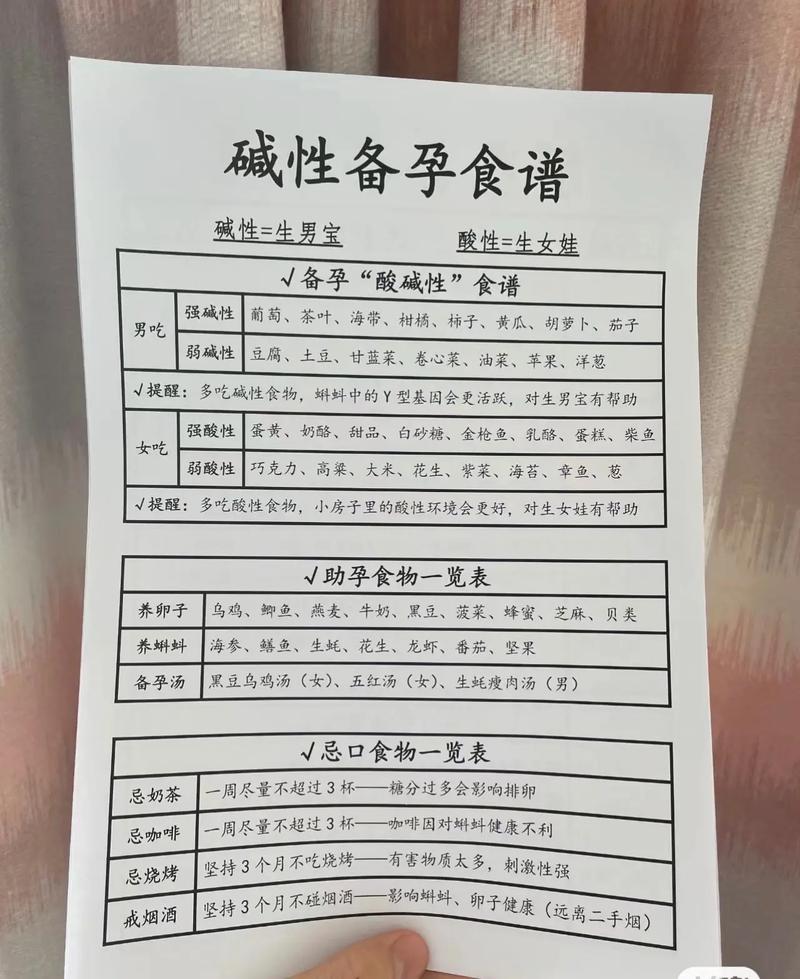 碱性备孕食谱
碱性=生男宝 酸性=生女娃
√备孕“酸碱性”食谱
男吃
强碱性 葡萄、茶叶、海带、柑橘、柿子、黄瓜、胡萝卜、茄子
弱碱性 豆腐、土豆、甘蓝菜、卷心菜、油菜、苹果、洋葱
√提醒：多吃碱性食物，蝌蚪中的Y型基因会更活跃，对生男宝有帮助
女吃
强酸性 蛋黄、奶酪、甜品、白砂糖、金枪鱼、乳酪、蛋糕、柴鱼
弱酸性 巧克力、高粱、大米、花生、紫菜、海苔、章鱼、葱
√提醒：多吃酸性食物，小房子里的酸性环境会更好，对生女娃有帮助
√助孕食物一览表
养卵子 乌鸡、鲫鱼、燕麦、牛奶、黑豆、菠菜、蜂蜜、芝麻、贝类
养蝌蚪 海参、鳝鱼、生蚝、花生、龙虾、番茄、坚果
备孕汤 黑豆乌鸡汤（女）、五红汤（女）、生蚝瘦肉汤（男）
√忌口食物一览表
忌奶茶 一周尽量不超过3杯——糖分过多会影响排卵
忌咖啡 一周尽量不超过3杯——咖啡因对蝌蚪健康不利
忌烧烤 坚持3个月不吃烧烤——有害物质太多，刺激性强
戒烟酒 坚持3个月不碰烟酒——影响蝌蚪、卵子健康（远离二手烟）